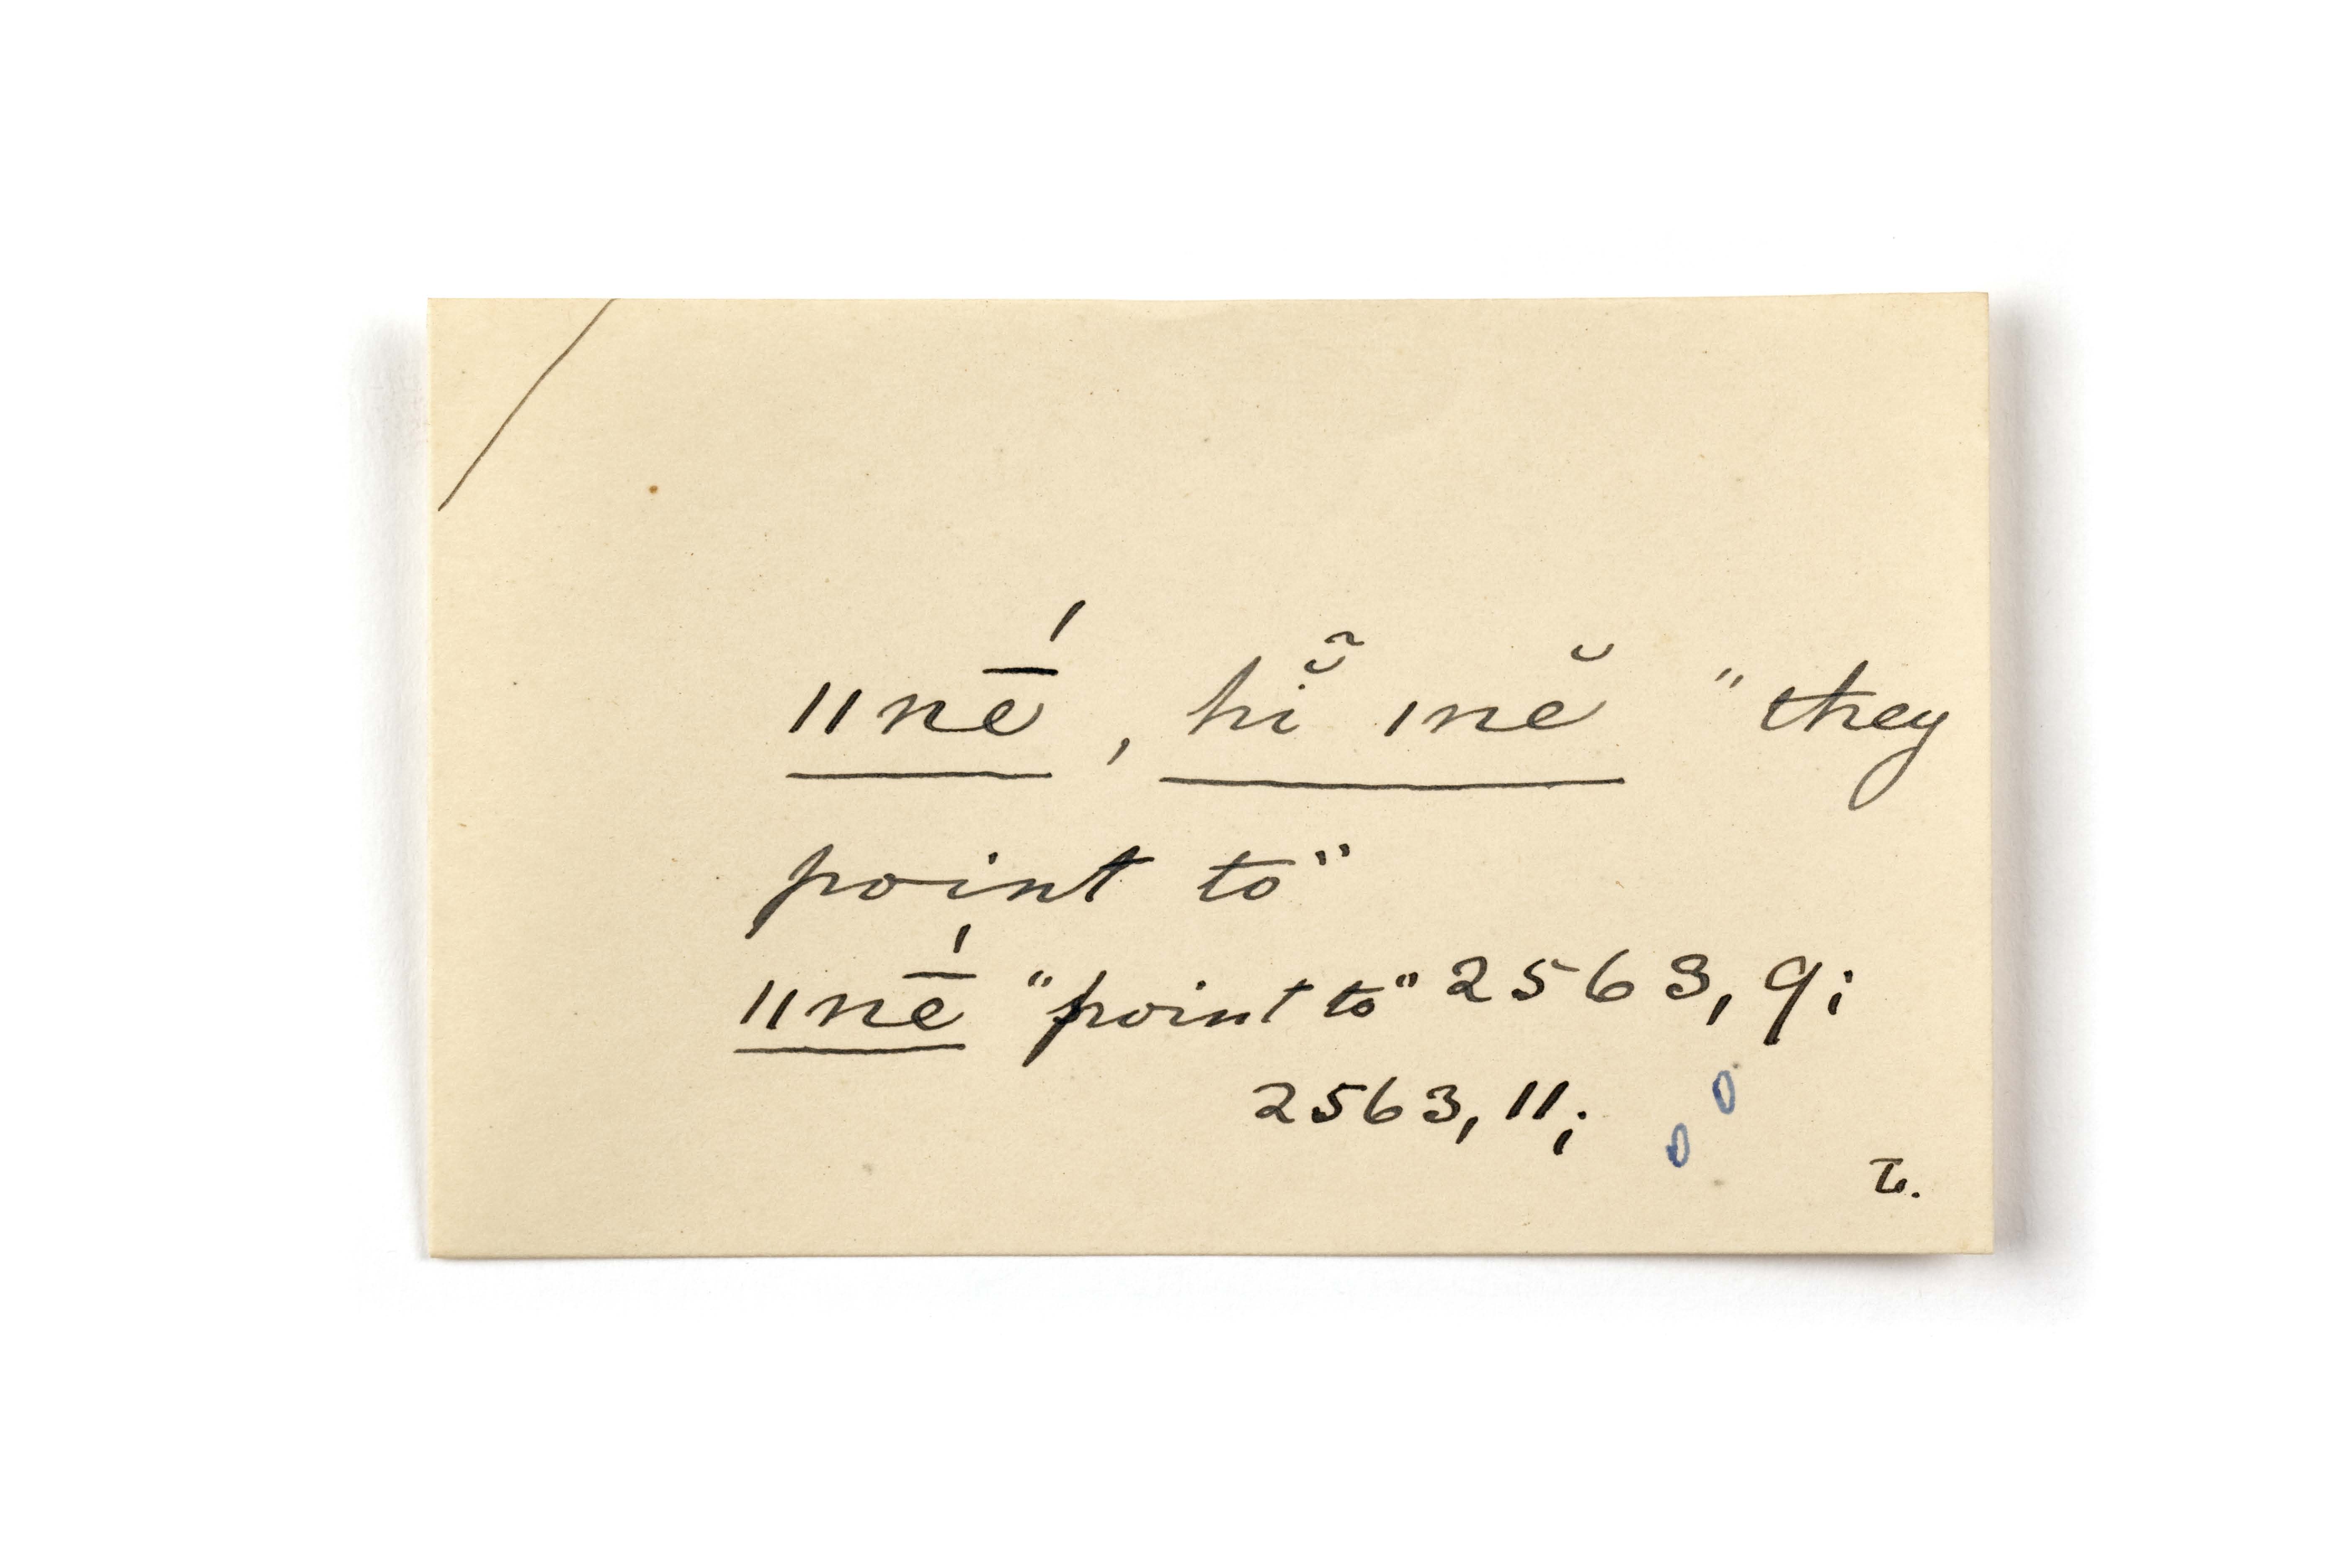 ǁnḗ, hĭ̃ ǀnĕ "they
point to"
ǁnḗ "point to" 2563, 9;
2563, 11;